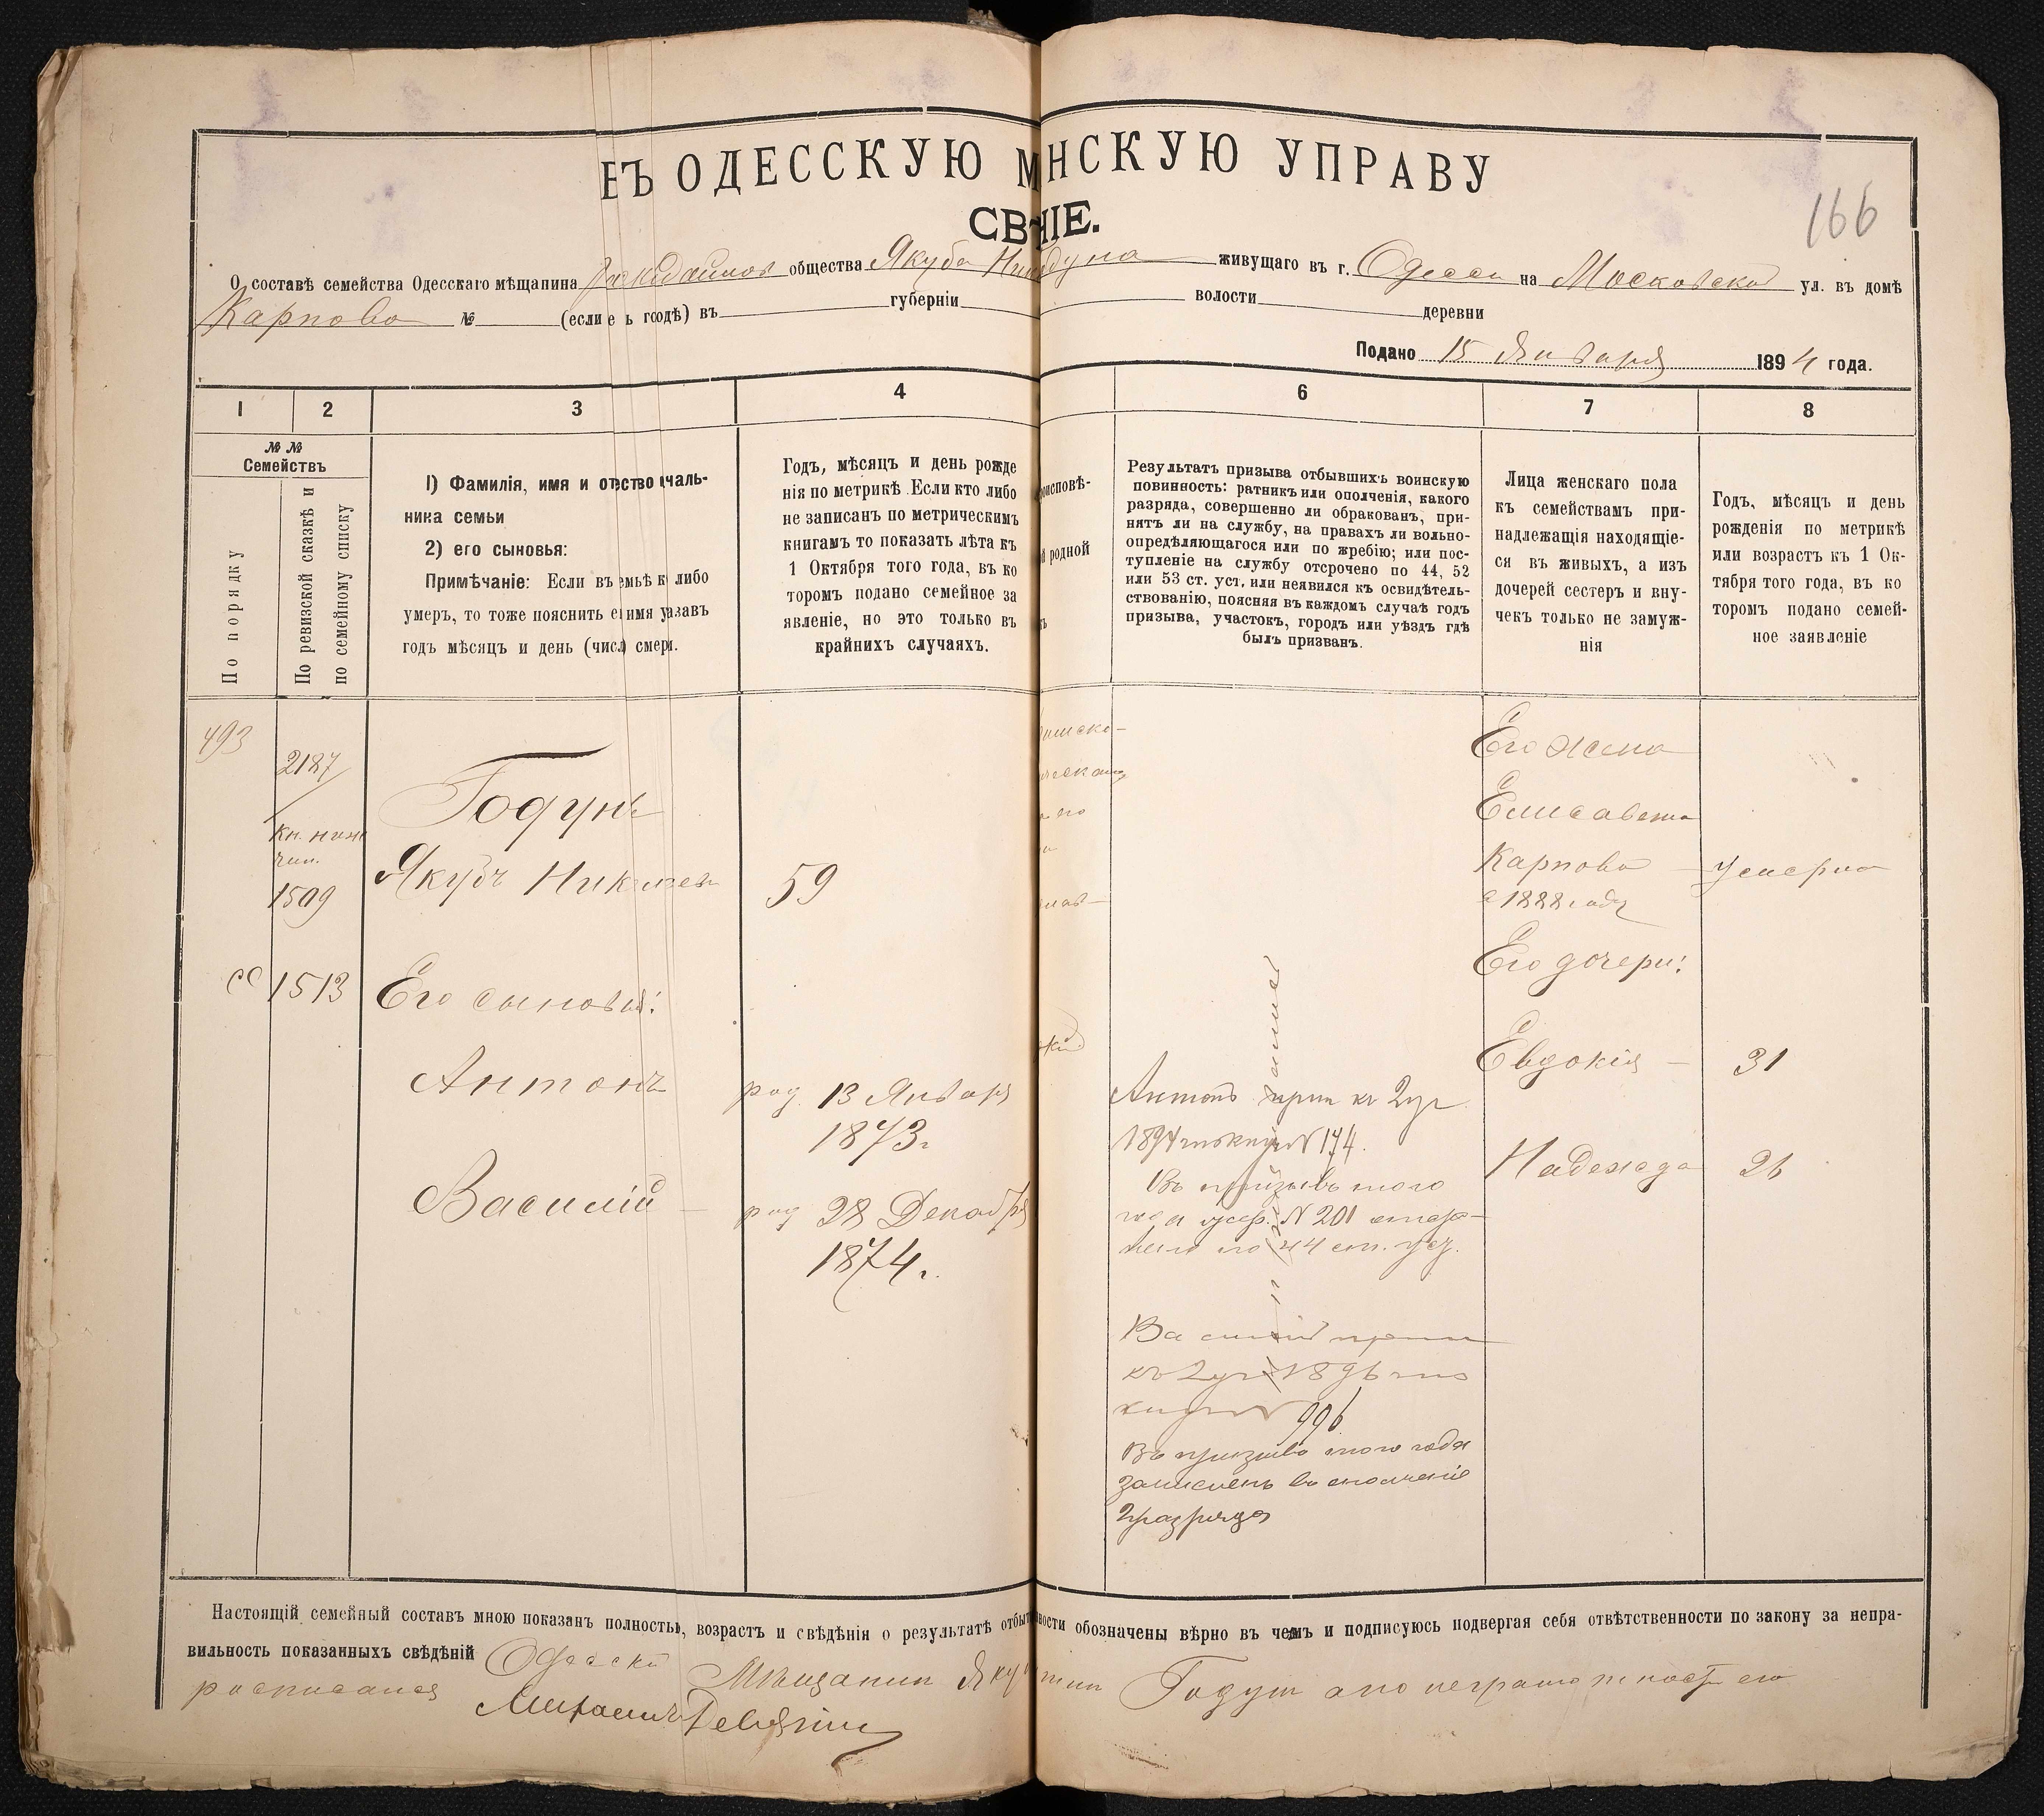 ЕЪ ОДЕССКУЮ М НСКУЮ УПРАВУ
СВ НІЕ.
166
О составѣ семейства Одесскаго мѣщанина общества Якуба живущаго въ г. Одессѣ на Московской ул. въ домѣ
Карпова № (если въ губерніи волости деревни
Подано 15 Января 1894 года.
1 2 3 4 6 7 8
№ №
Семействъ
По порядку
По ревизской сказкѣ и
по семейному списку
1) Фамилія, имя и
ника семьи
2) его сыновья:
Примѣчаніе: Если въ либо
умеръ, то тоже пояснить
годъ мѣсяцъ и день
Годъ, мѣсяцъ и день рожде
нія по метрикѣ. Если кто либо
не записанъ по метрическимъ
книгамъ то показать лѣта къ
1 Октября того года, въ ко
торомъ подано семейное за
явленіе, но это только въ
крайнихъ случаяхъ.
оисповѣ-
й родной
Результатъ призыва отбывшихъ воинскую
повинность: ратникъ или ополченія, какого
разряда, совершенно ли обракованъ, при-
нятъ ли на службу, на правахъ ли вольно-
опредѣляющагося или по жребію; или пос-
тупленіе на службу отсрочено по 44, 52
или 53 ст. уст. или неявился къ освидѣтель-
ствованію, поясняя въ каждомъ случаѣ годъ
призыва, участокъ, городъ или уѣздъ гдѣ
былъ призванъ.
Лица женскаго пола
къ семействамъ при-
надлежащія находящіе-
ся въ живыхъ, а изъ
дочерей сестеръ и вну-
чекъ только не замуж-
нія
Годъ, мѣсяцъ и день
рожденія по метрикѣ
или возрастъ къ 1 Ок-
тября того года, въ ко
торомъ подано семей-
ное заявленіе
493
2187
1509
1513
Годунъ
Якубъ 59
Его сыновья:
Антонъ род. 13 Января
1873 г.
Василій род 28 Декабря
1874 г.
Антонъ прип къ 2 уч
1894 г по книгѣ N 174.
Въ призывъ того
N 201
по 44 ст. уст.
Василій прип
къ 2 уч 1896 г по
книгѣ N 996
Въ призывъ того года
зачисленъ въ ополченіе
2 разряда
Его жена
Елисавета
Карпова умерла
въ 1888 году
Его дочери:
Евдокія 31
Надежда 26
Настоящій семейный составъ мною показанъ полностью, возрастъ и свѣдѣнія о результатѣ отбыт ности обозначены вѣрно въ чемъ и подписуюсь подвергая себя отвѣтственности по закону за непра-
вильность показанныхъ свѣдѣній Одесскій Мѣщанин Годун а по неграмотности его
росписался